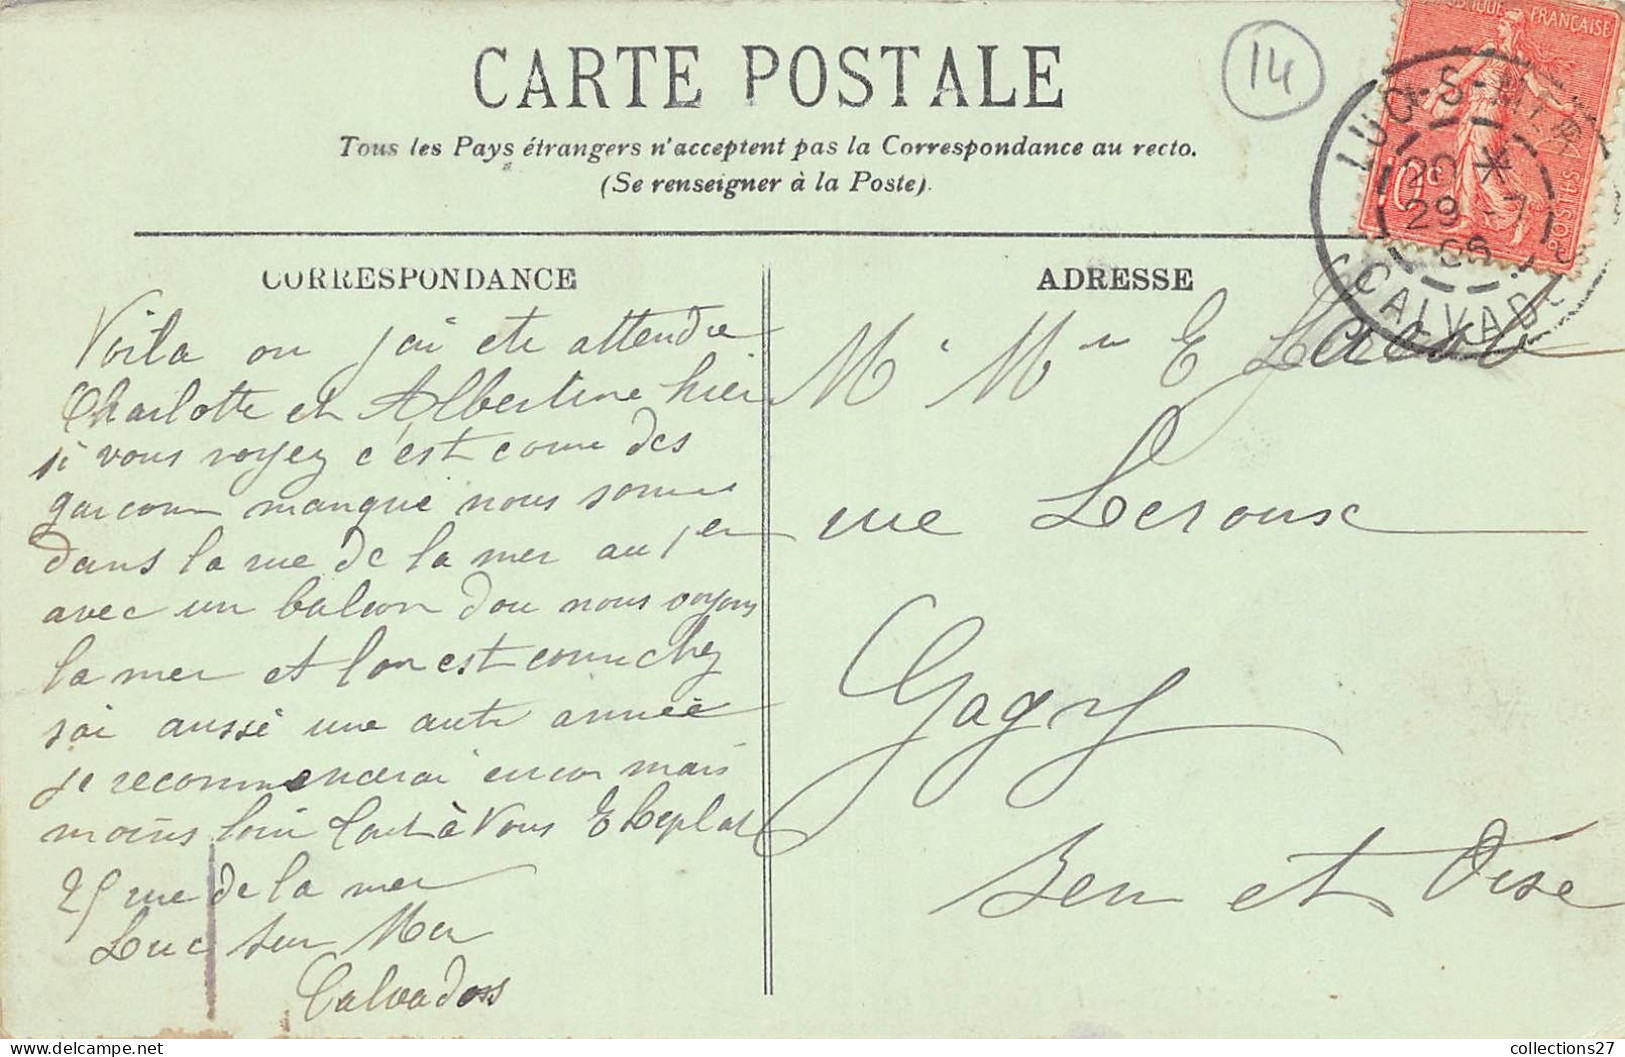 CARTE POSTALE
14
RÉPUBLIQUE FRANÇAISE
POSTES
10c
LUC-S-MER
20 *
29 - 7
CALVADOS
Tous les Pays étrangers n'acceptent pas la Correspondance au recto.
(Se renseigner à la Poste).
CORRESPONDANCE
Voila ou j'ai ete attendre
Charlotte et Albertine hier
si vous voyez c'est come des
garcons manque nous somme
dans la rue de la mer au 1er
avec un balcon dou nous voyons
la mer et lon est come chez
soi aussi une autre année
je recommencerai encor mais
moins loin tout à Vous E Leplat
25 rue de la mer
Luc sur Mer
Calvados
ADRESSE
Mr Mme E
rue Leroux
Gagny
Sen et Oise
collections27